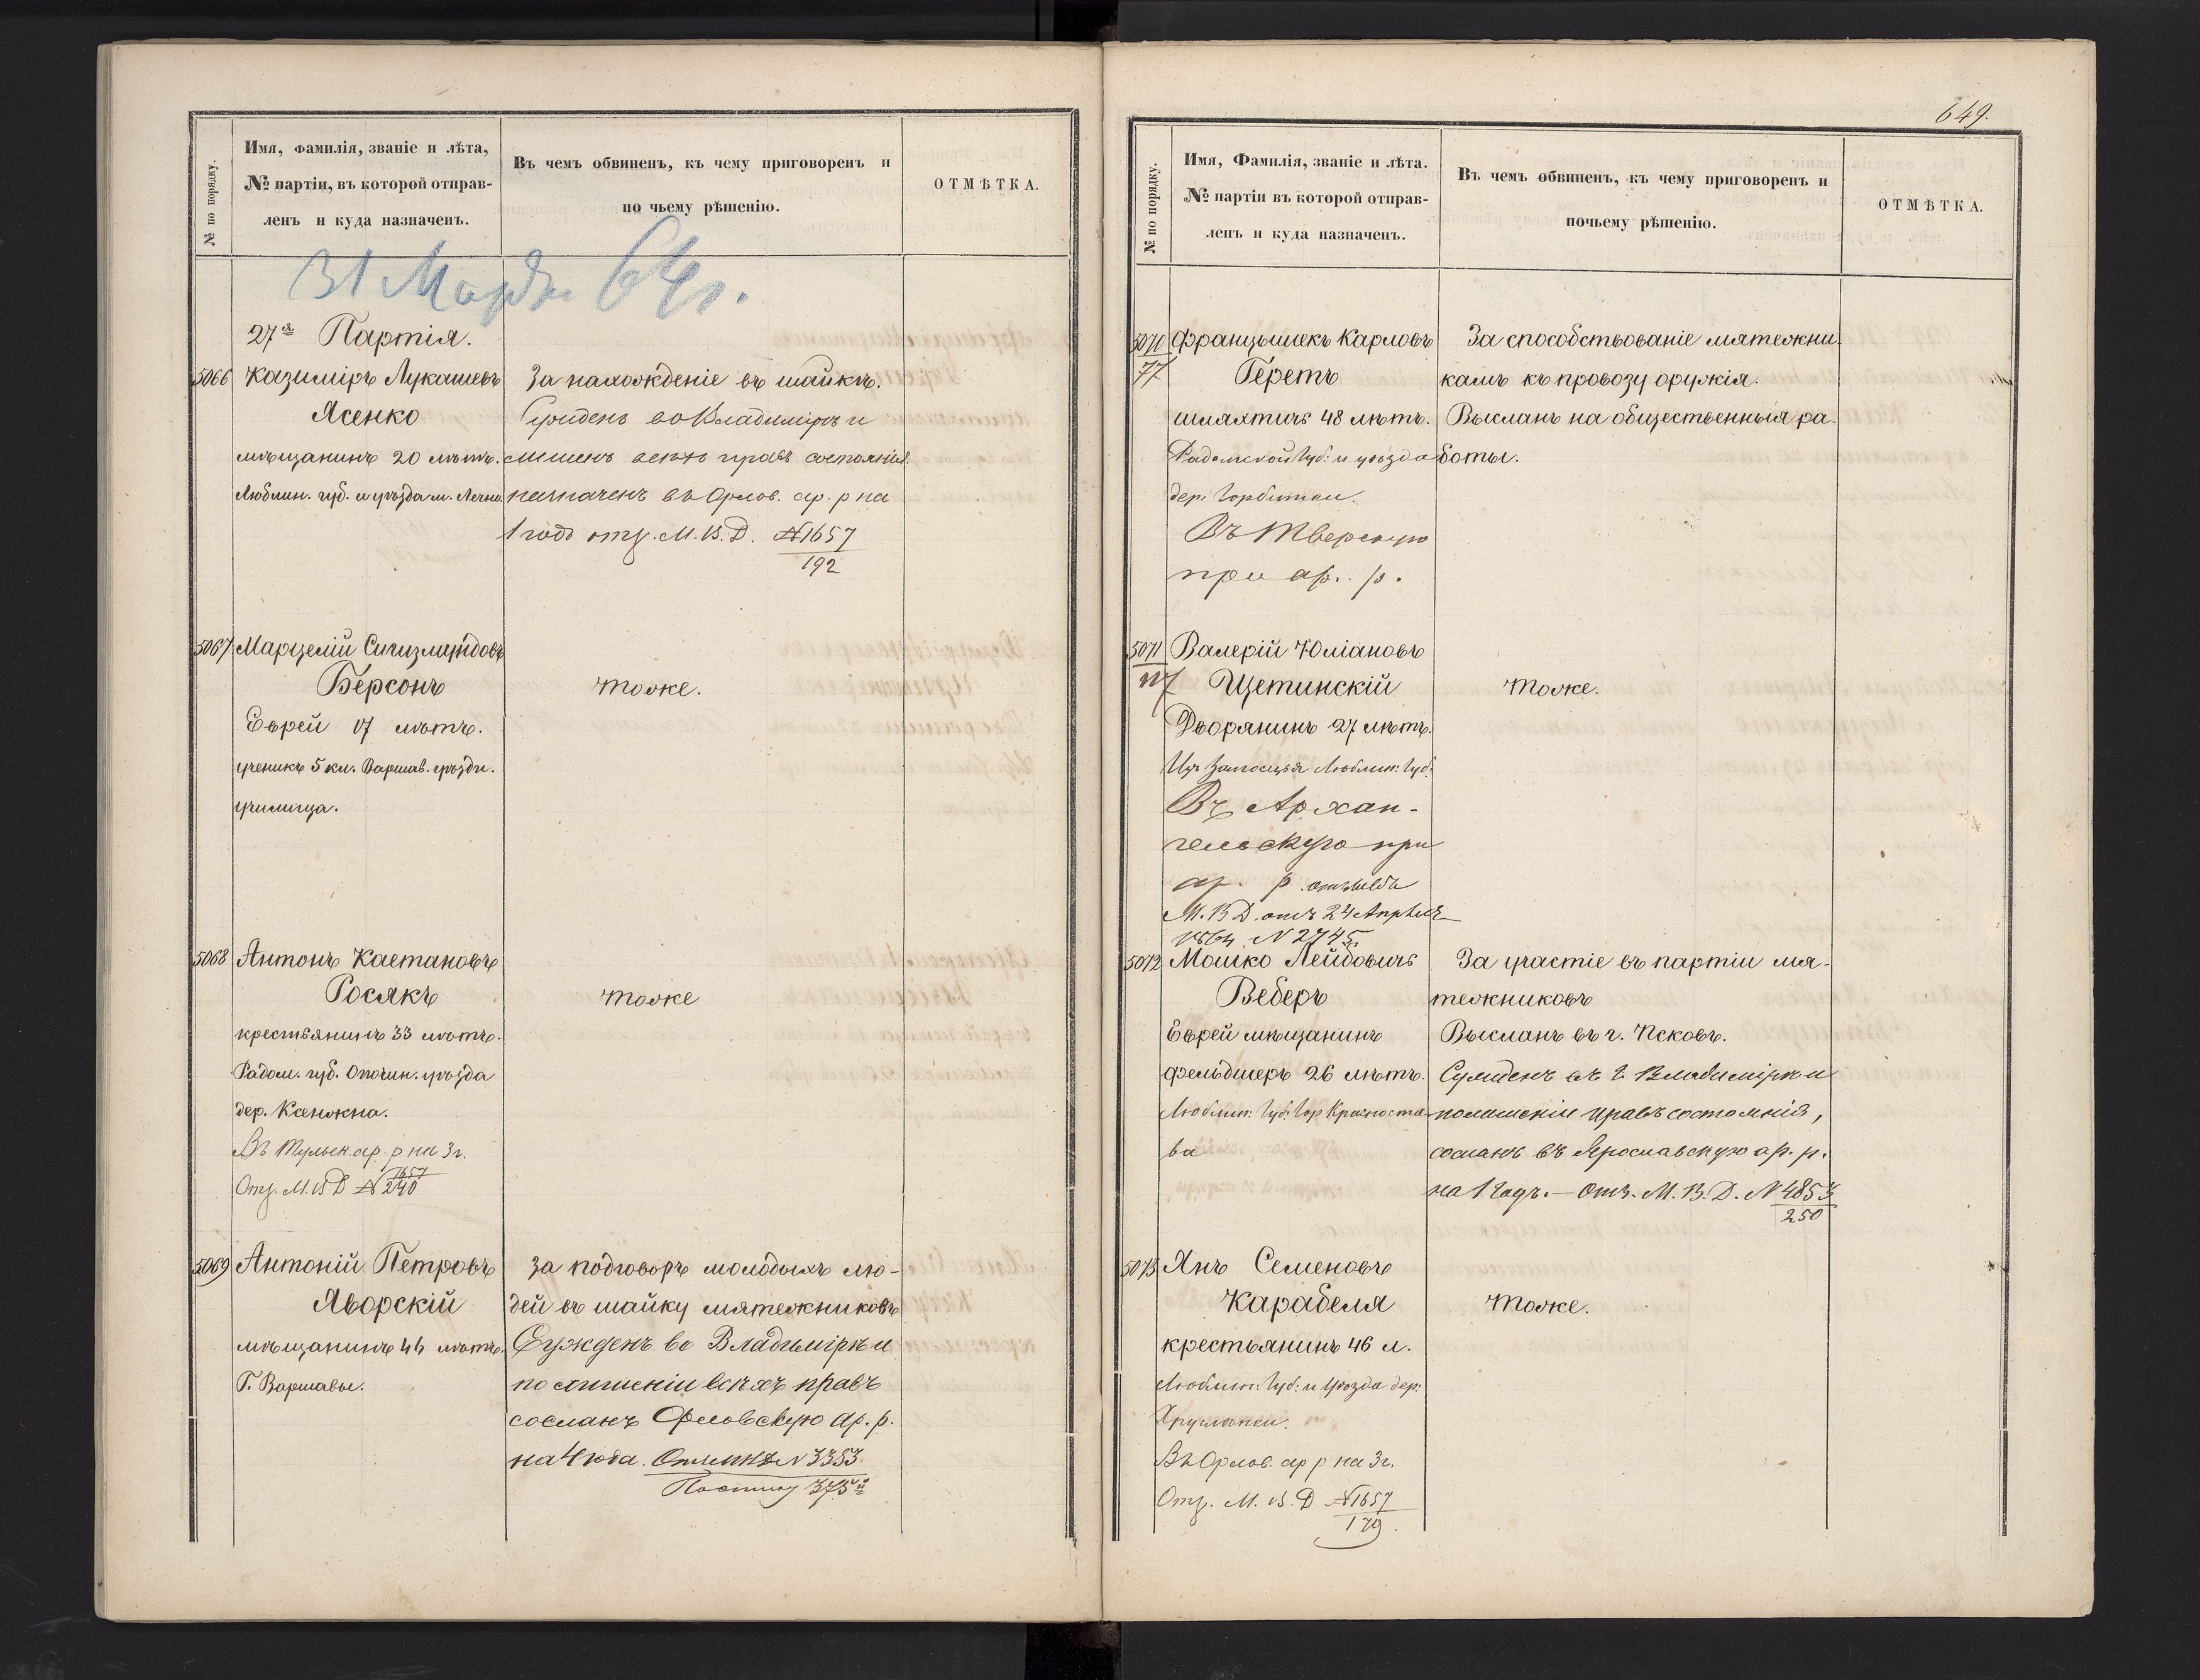 № по порядку.
Имя, фамилія, званіе и лѣта,
№ партіи, въ которой отправ-
ленъ и куда назначенъ.
Въ чемъ обвиненъ, къ чему приговоренъ и
по чьему рѣшенію.
ОТМѢТКА.
31 Марта 64 г.
27я Партія.
5066 Казиміръ Лукашевъ
Ясенко
мѣщанинъ 20 лѣтъ.
Люблин. губ. и уѣзда м.
За нахожденіе въ шайкѣ.
Сужденъ во Владимірѣ и
лишенъ всѣхъ правъ состоянія.
назначенъ въ Орлов. ар. р на
1 годъ отз. М. В. Д. № 1657
192
5067 Марцелій Сигизмундовъ
Берсонъ
Еврей 17 лѣтъ.
ученикъ 5 кл. Варшав. уѣздн.
училища.
тоже.
5068 Антонъ Каетановъ
Росякъ
крестьянинъ 33 лѣтъ.
Радом. губ. Опочин. уѣзда
дер.
Въ Тульск. ар. р на 3 г.
Отз. М. В Д № 1657
240
тоже
5069 Антоній Петровъ
Яворскій
мѣщанинъ 44 лѣтъ.
Г. Варшавы.
За подговоръ молодыхъ лю-
дей въ шайку мятежниковъ
Сужденъ во Владимірѣ и
по лишеніи всѣхъ правъ
сосланъ Орловскую ар. р.
на 4 года. № 3353
375
649.
№ по порядку.
Имя, Фамилія, званіе и лѣта.
№ партіи въ которой отправ-
ленъ и куда назначенъ.
Въ чемъ обвиненъ, къ чему приговоренъ и
почьему рѣшенію.
ОТМѢТКА.
5070 Францышекъ Карловъ
77 Геретъ
шляхтичъ 48 лѣтъ.
Радомской Губ: и уѣзда
дер:
Въ Тверскую
при ар. р.
За способствованіе мятежни-
камъ къ провозу оружія.
Высланъ на общественныя ра-
боты.
5071 Валерій Юліановъ
Щетинскій
Дворянинъ 27 лѣтъ.
Изъ Замосцья Люблин: Губ:
Въ Архан-
гельскую при
ар. р. отзывъ
М. В Д. отъ 24 Апрѣля
1864 N 2745.
тоже.
5072 Мошко Лейбовичъ
Веберъ
Еврей мѣщанинъ
фельдшеръ 26 лѣтъ.
Люблин: Губ: Гор Красноста-
ва
За участіе въ партіи мя-
тежниковъ
Высланъ въ г. Псковъ.
Сужденъ въ г. Владимірѣ и
полишеніи правъ состоянія,
сосланъ въ Ярославскую ар. р.
на 1 годъ. — Отз. М. В. Д. N 4853
250
5073 Янъ Семеновъ
Карабеля
крестьянинъ 46 л.
Люблин: Губ: и Уѣзда дер:
Въ Орлов. ар р на 3 г.
Отз. М. В. Д № 1657
179.
тоже.